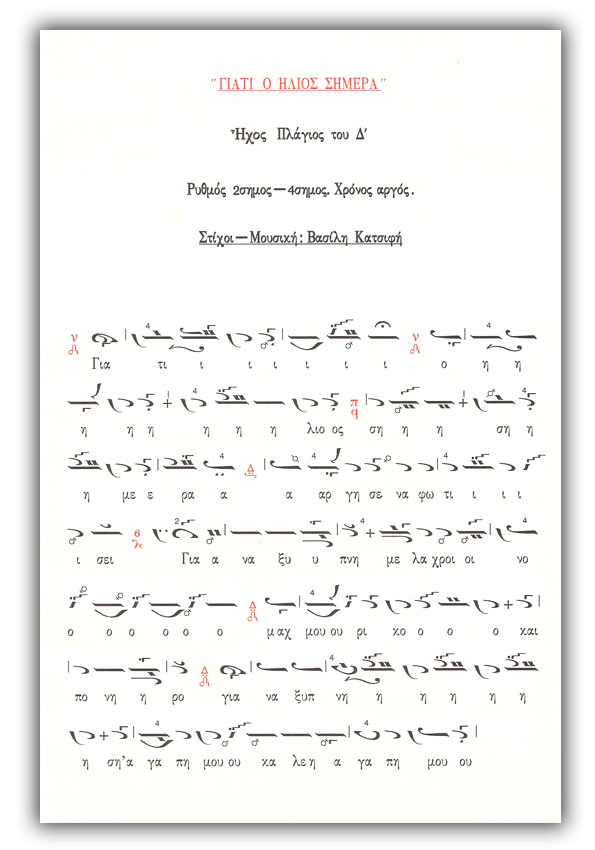 "ΓΙΑΤΙ Ο ΗΛΙΟΣ ΣΗΜΕΡΑ"
Ἦχος Πλάγιος του Δ'
Ρυθμός 2σημος — 4σημος. Χρόνος αργός.
Στίχοι — Μουσική: Βασίλη Κατσιφή
Για τι ι ι ι ι ι ι ο η η
η η η η η η λιο ος ση η η ση η
η με ε ρα α α αρ γη σε να φω τι ι ι ι
ι σει Για α να ξυ υ πνη με λα χροι οι νο
ο ο ο ο ο ο μαχ μου ου ρι κο ο ο ο και
πο νη η ρο για να ξυπ νη η η η η η
η ση'α γα πη μου ου κα λε η α γα πη μου ου